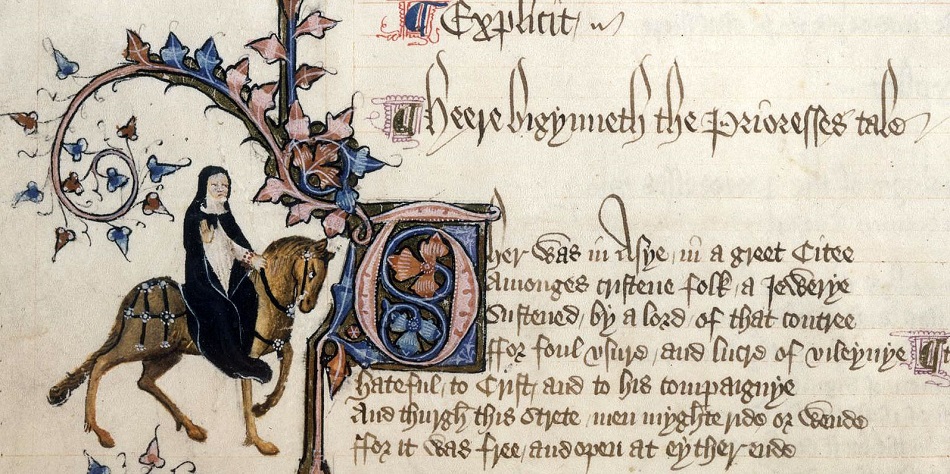 Explicit
Heere bigynneth the Prioresses tale
Ther was in Asye in a greet Citee
Amonges cristene folk / a Jewerye
Sustened / by a lord / of that contree
ffor foul vsure / and lucre of vileynye
hateful / to Crist / and to his compaignye
And thurgh this Strete / men myghte ride or wende
ffor it was free / and open at eyther ende